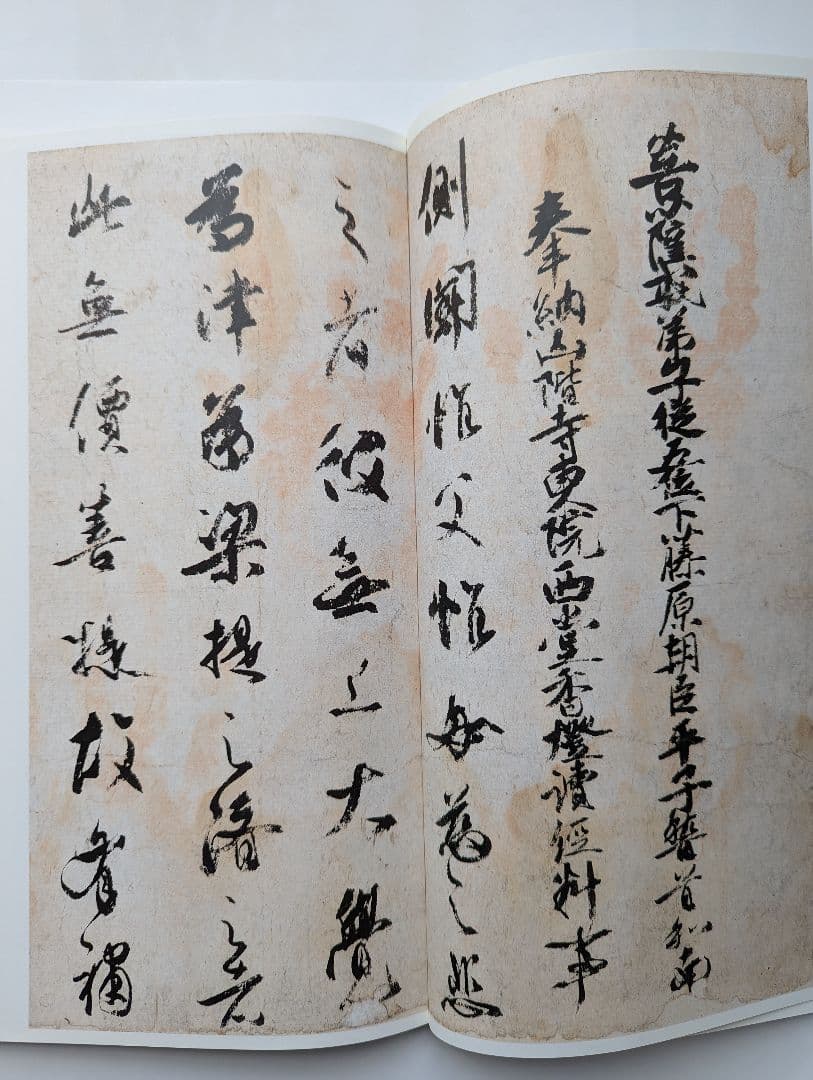 菩薩戒弟子從五位下藤原朝臣平子稽首和南
奉納山階寺東院西堂香燈讀經料事
側聞惟父惟母慈之悲
之者彼無上大覺
為津為梁提之濟之者
此無價善根故有補